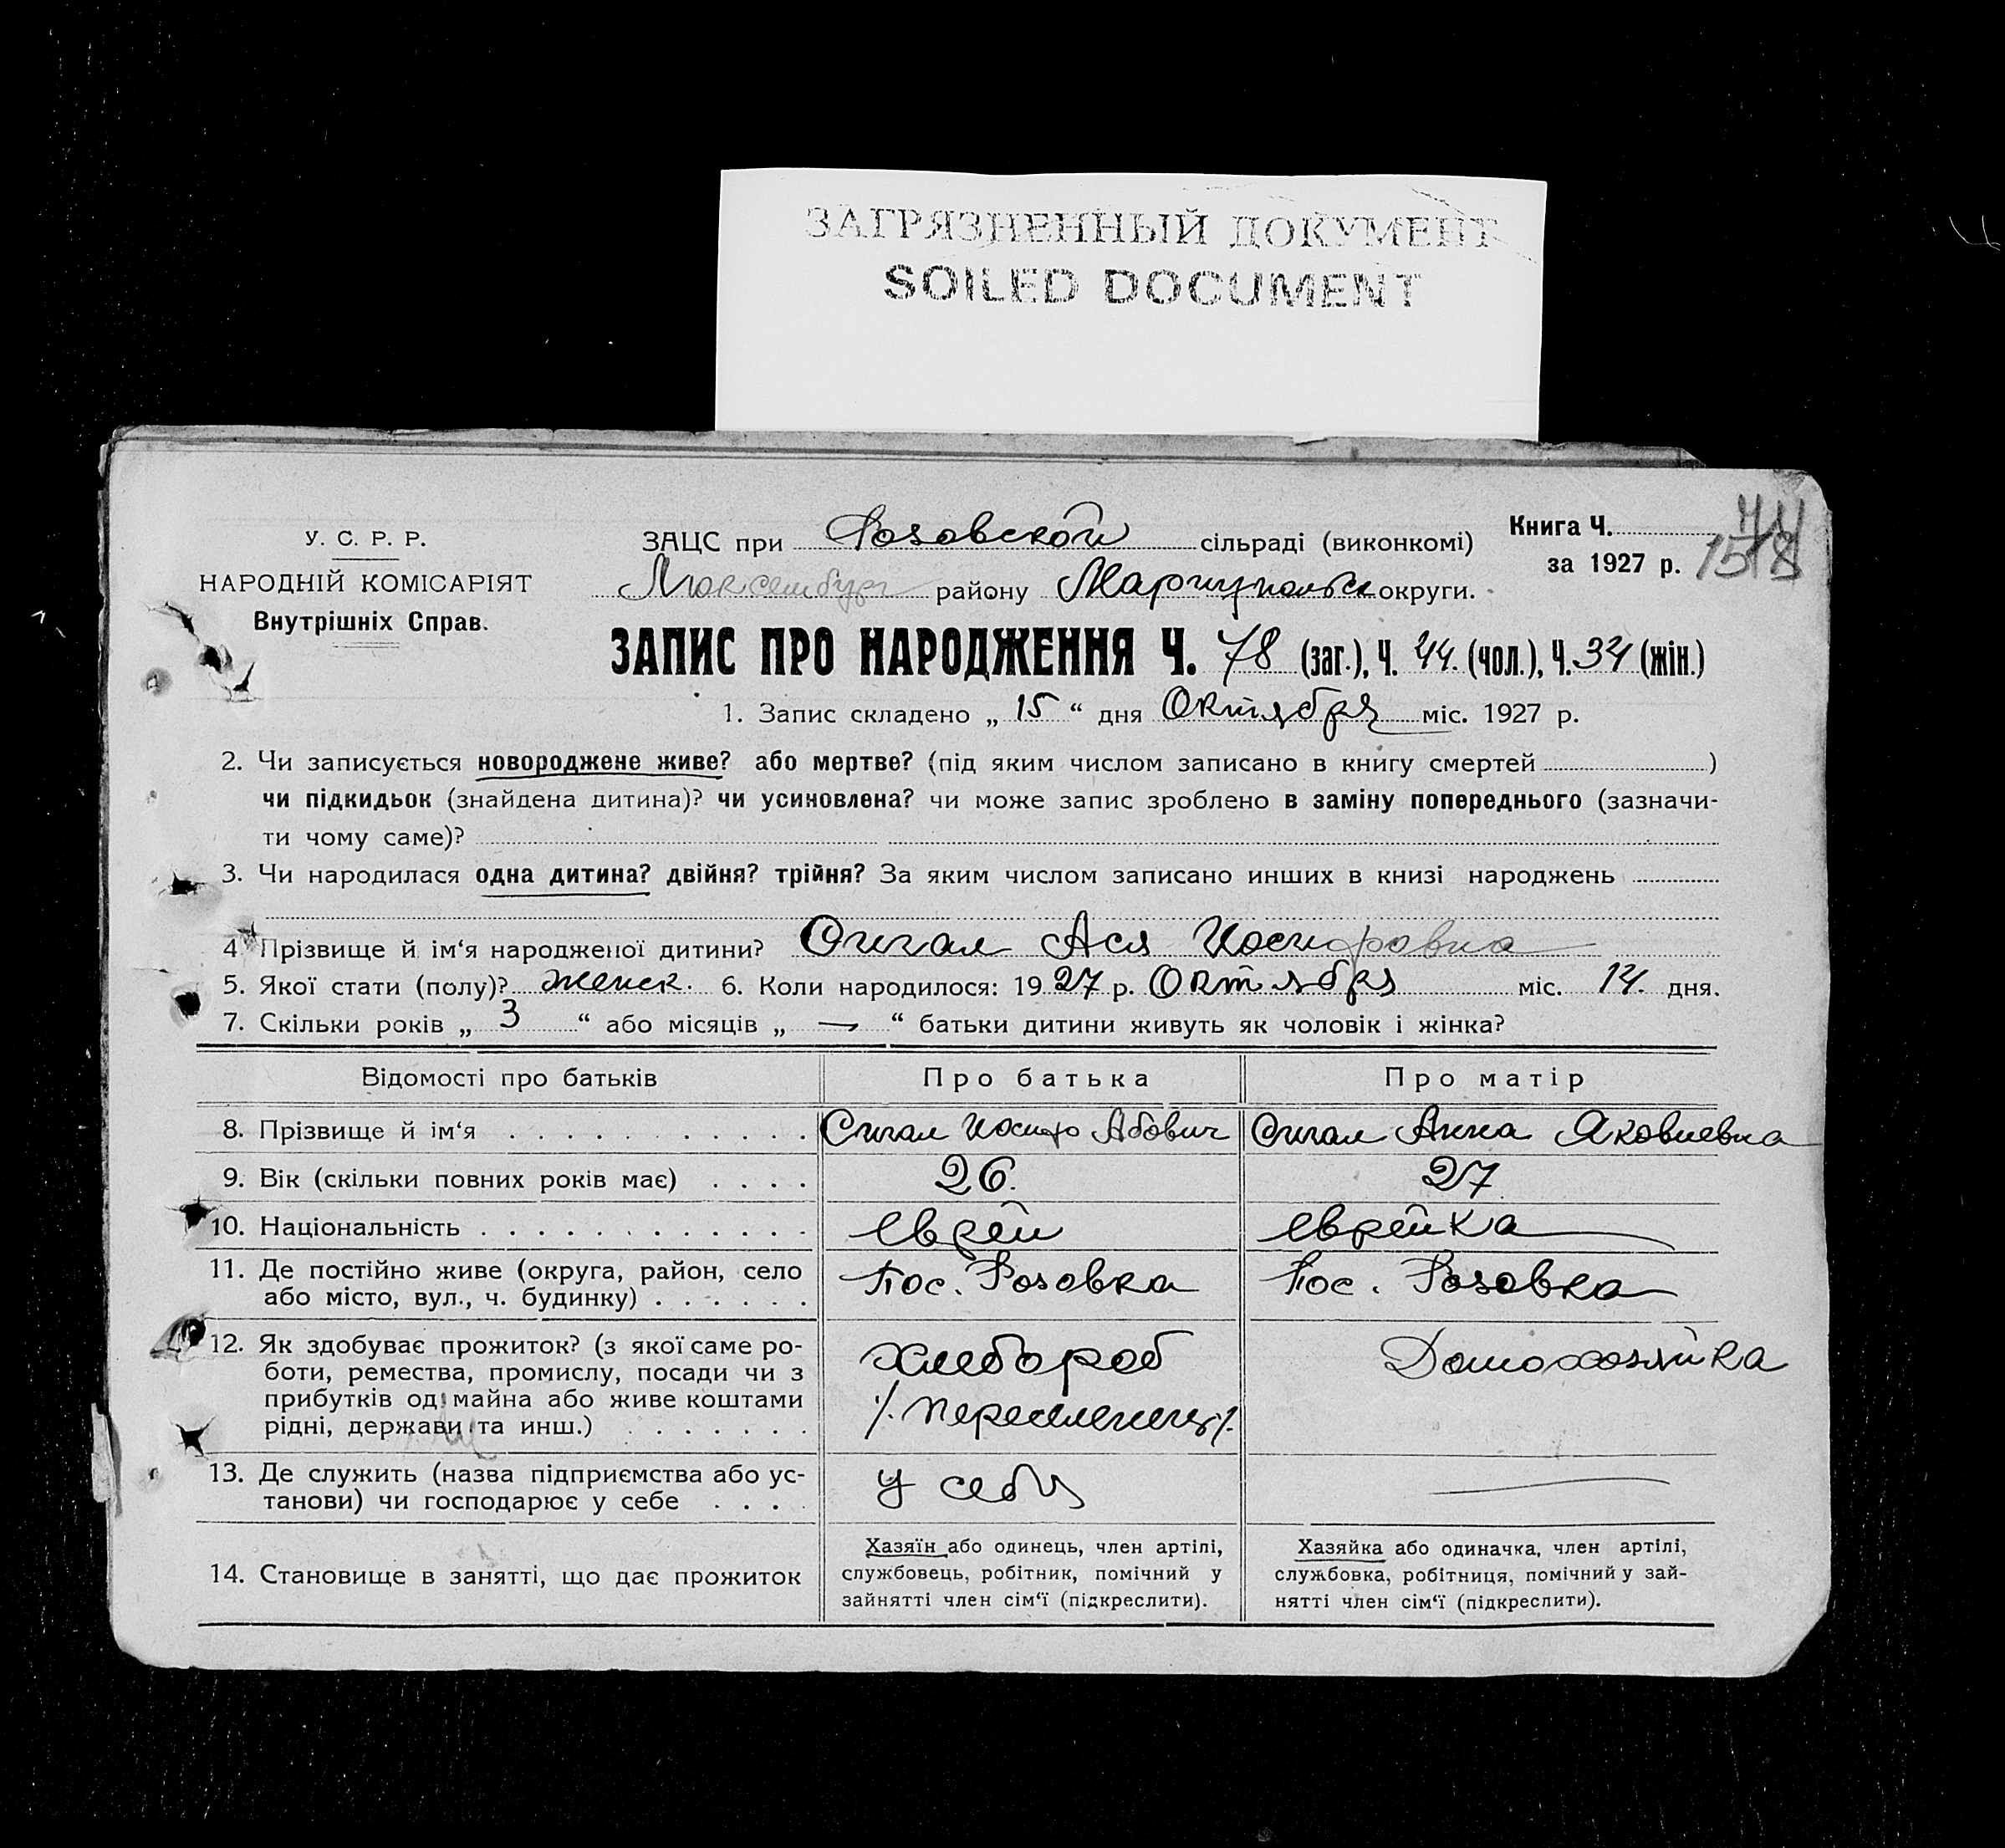 ЗАГРЯЗНЕННЫЙ ДОКУМЕНТ
SOILED DOCUMENT
У. С. Р. Р.
НАРОДНІЙ КОМІСАРІЯТ
Внутрішніх Справ.
ЗАЦС при Розовской сільраді (виконкомі)
Люксембург району Мариупольск округи.
Книга Ч.
за 1927 р.
ЗАПИС ПРО НАРОДЖЕННЯ Ч. 78 (заг.), Ч. 44. (чол.), Ч. 34 (жін.)
1. Запис складено „ 15 “ дня Октября міс. 1927 р.
2. Чи записується новороджене живе? або мертве? (під яким числом записано в книгу смертей )
чи підкидьок (знайдена дитина)? чи усиновлена? чи може запис зроблено в заміну попереднього (зазначи-
ти чому саме)?
3. Чи народилася одна дитина? двійня? трійня? За яким числом записано инших в книзі народжень
4 Прізвище й ім‘я народженої дитини? Сигал Ася Иосифовна
5. Якої стати (полу)? женск. 6. Коли народилося: 1927 р. Октября міс. 14. дня.
7. Скільки років „ 3 “ або місяців „ — “ батьки дитини живуть як чоловік і жінка?
Відомості про батьків Про батька Про матір
8. Прізвище й ім‘я Сигал Иосиф Абович Сигал Анна Яковлевна
9. Вік (скільки повних років має) 26. 27
10. Національність еврей еврейка
11. Де постійно живе (округа, район, село
або місто, вул., ч. будинку) Пос. Розовка Пос. Розовка
12. Як здобуває прожиток? (з якої саме ро-
боти, ремества, промислу, посади чи з
прибутків од майна або живе коштами
рідні, держави та инш.)
хлебороб
/. переселенец /.
Домохозяйка
13. Де служить (назва підприємства або ус-
танови) чи господарює у себе
у себя
14. Становище в занятті, що дає прожиток
Хазяїн або одинець, член артілі,
службовець, робітник, помічний у
зайнятті член сім‘ї (підкреслити).
Хазяйка або одиначка, член артілі,
службовка, робітниця, помічний у зай-
нятті член сім‘ї (підкреслити).